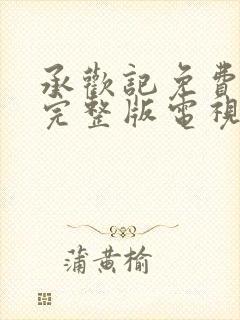 承歡記免費
完整版電視
蒲黃榆